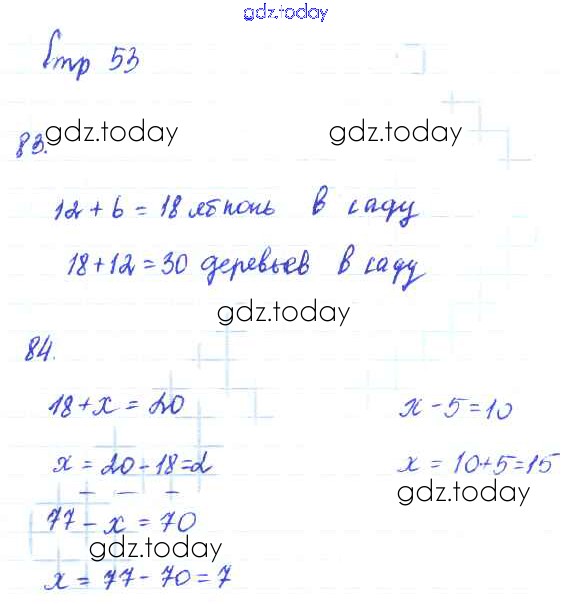 gdz.today
Стр 53
83.
gdz.today gdz.today
12 + 6 = 18 яблонь в саду
18 + 12 = 30 деревьев в саду
gdz.today
84.
18 + x = 20 x - 5 = 10
x = 20 - 18 = 2 x = 10 + 5 = 15
gdz.today
77 - x = 70
gdz.today
x = 77 - 70 = 7